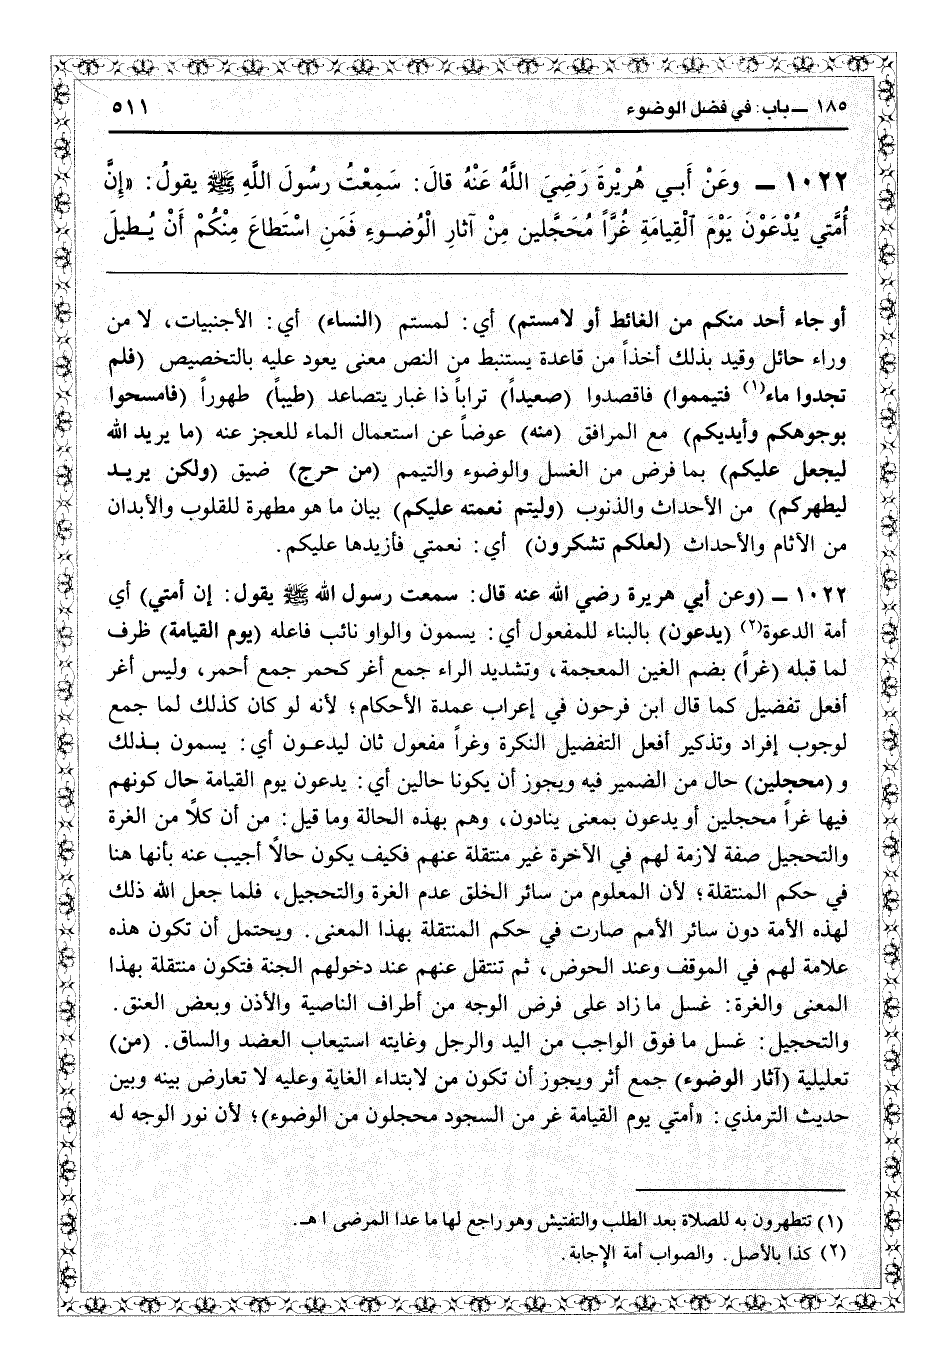 ١٨٥ ــ باب: في فضل الوضوء
٥١١
١٠٢٢ ــ وعَنْ أَبـي هُرِيْرةَ رَضِيَ اللَّهُ عَنْهُ قالَ: سَمِعْتُ رسُولَ اللَّهِ ﷺ يقولُ: «إِنَّ
أُمَّتي يُدْعَوْنَ يَوْمَ الْقِيامَةِ غُرَّاً مُحَجَّلين مِنْ آثارِ الْوُضـوءِ فَمَنِ اسْتَطاعَ مِنْكُمْ أَنْ يُـطيلَ
أو جاء أحد منكم من الغائط أو لامستم) أي: لمستم (النساء) أي: الأجنبيات، لا من
وراء حائل وقيد بذلك أخذاً من قاعدة يستنبط من النص معنى يعود عليه بالتخصيص (فلم
تجدوا ماء(١) فتيمموا) فاقصدوا (صعيداً) تراباً ذا غبار يتصاعد (طيباً) طهوراً (فامسحوا
بوجوهكم وأيديكم) مع المرافق (منه) عوضاً عن استعمال الماء للعجز عنه (ما يريد الله
ليجعل عليكم) بما فرض من الغسل والوضوء والتيمم (من حرج) ضيق (ولكن يريـد
ليطهركم) من الأحداث والذنوب (وليتم نعمته عليكم) بيان ما هو مطهرة للقلوب والأبدان
من الآثام والأحداث (لعلكم تشكرون) أي: نعمتي فأزيدها عليكم.
١٠٢٢ ــ (وعن أبي هريرة رضي الله عنه قال: سمعت رسول الله ﷺ يقول: إن أمتي) أي
أمة الدعوة(٢) (يدعون) بالبناء للمفعول أي: يسمون والواو نائب فاعله (يوم القيامة) ظرف
لما قبله (غراً) بضم الغين المعجمة، وتشديد الراء جمع أغر كحمر جمع أحمر، وليس أغر
أفعل تفضيل كما قال ابن فرحون في إعراب عمدة الأحكام؛ لأنه لو كان كذلك لما جمع
لوجوب إفراد وتذكير أفعل التفضيل النكرة وغراً مفعول ثان ليدعـون أي: يسمون بـذلك
و (محجلين) حال من الضمير فيه ويجوز أن يكونا حالين أي: يدعون يوم القيامة حال كونهم
فيها غراً محجلين أو يدعون بمعنى ينادون، وهم بهذه الحالة وما قيل: من أن كلاً من الغرة
والتحجيل صفة لازمة لهم في الآخرة غير منتقلة عنهم فكيف يكون حالاً أجيب عنه بأنها هنا
في حكم المنتقلة؛ لأن المعلوم من سائر الخلق عدم الغرة والتحجيل، فلما جعل الله ذلك
لهذه الأمة دون سائر الأمم صارت في حكم المنتقلة بهذا المعنى. ويحتمل أن تكون هذه
علامة لهم في الموقف وعند الحوض، ثم تنتقل عنهم عند دخولهم الجنة فتكون منتقلة بهذا
المعنى والغرة: غسل ما زاد على فرض الوجه من أطراف الناصية والأذن وبعض العنق.
والتحجيل: غسل ما فوق الواجب من اليد والرجل وغايته استيعاب العضد والساق. (من)
تعليلية (آثار الوضوء) جمع أثر ويجوز أن تكون من لابتداء الغاية وعليه لا تعارض بينه وبين
حديث الترمذي: «أمتي يوم القيامة غر من السجود محجلون من الوضوء)؛ لأن نور الوجه له
(١) تتطهرون به للصلاة بعد الطلب والتفتيش وهو راجع لها ما عدا المرضى ا هـ.
(٢) كذا بالأصل. والصواب أمة الإجابة.